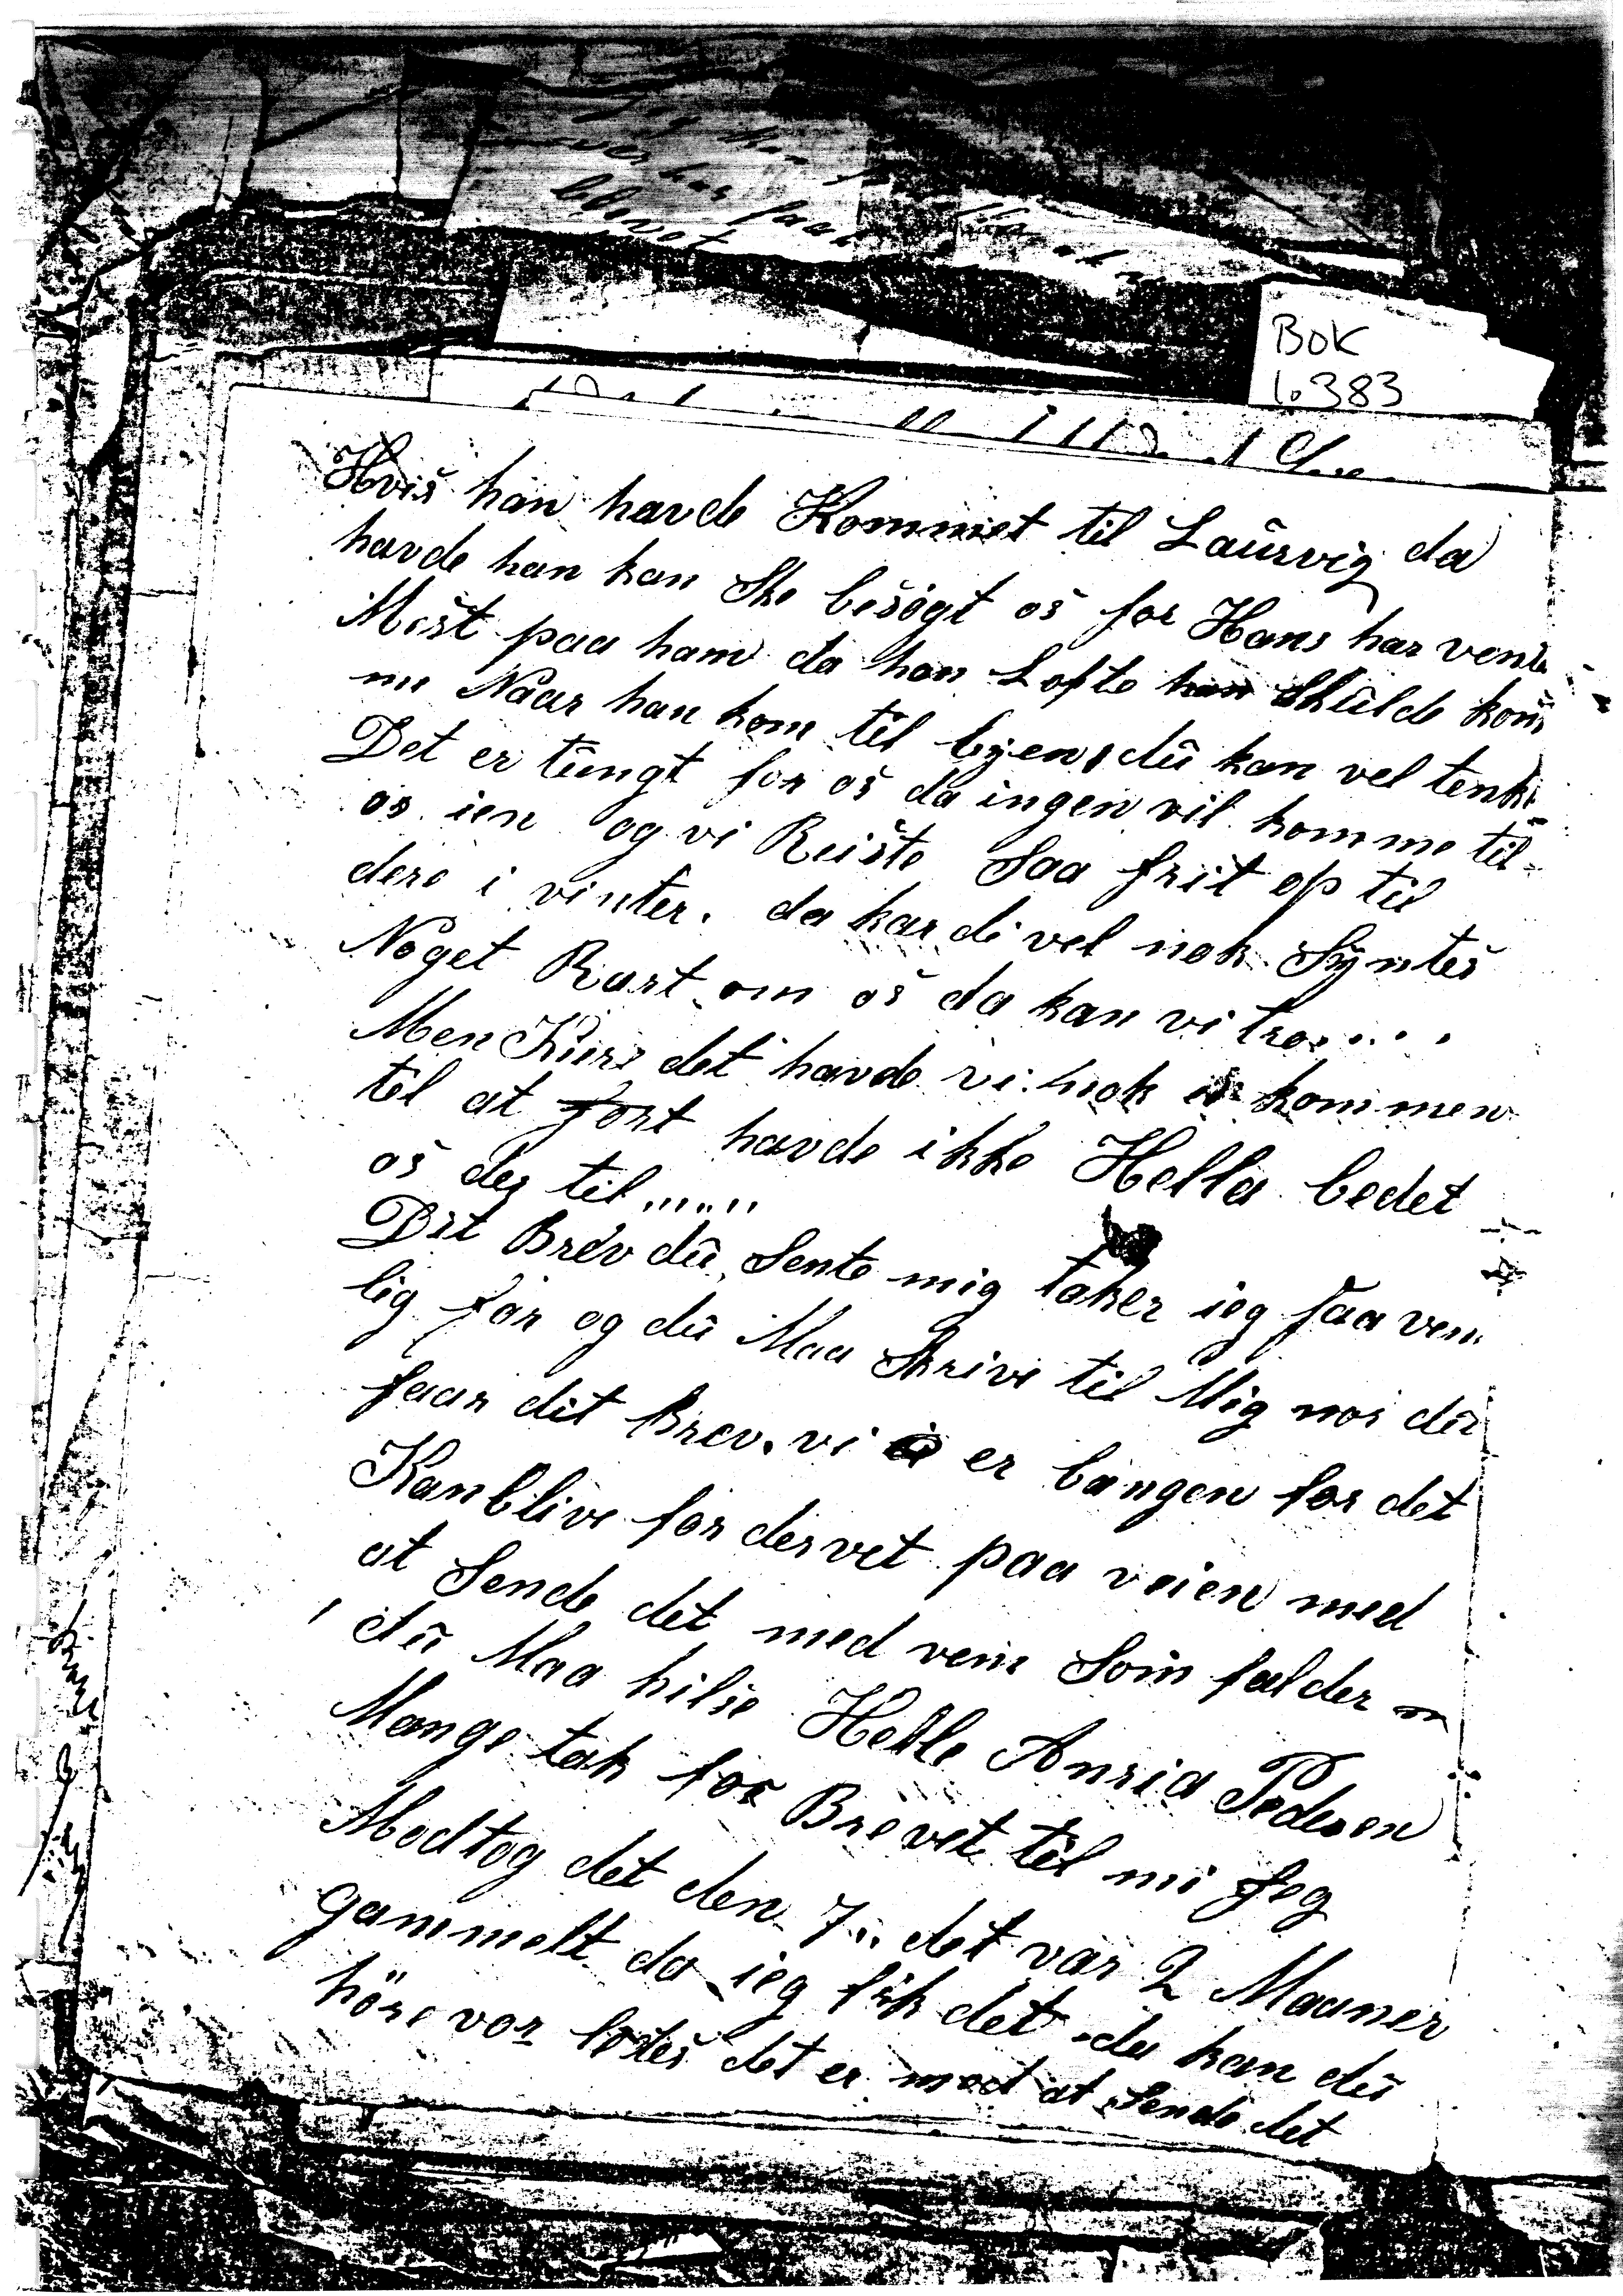 Bok
1.383
Hvis han havde Kommet til Laürvig da
havde han kan Ske besögt os for Hans har vente
Mest paa ham da han Lofte han Skülde kom
me Naar han kom til byen, dü kan vel tenke
Det er tüngt for os da ingen vil komme til
os ien og vi Reiste Saa frit op til
dere i vinter. da har di vel nok Syntes
Noget Rart om os da kan vi tro....
Men Kürs det havde vi nok ik kommen
til at fort havde ikke Hella bedet
os der til......
Dit Brev dü Sente mig taker ieg saa ven
lig for og dü Maa Skrive til Mig nor dü
faar dit Brev. vi er bangen for det
Kan blive for dervet paa veien med
at Sende det med vem Som falder
dü Maa hilse Helle Anria Pedesen
Mange tak for Brevet til mi Jeg
Modtog det den 7.. det var 2 Maaner
gammelt da ieg fik det du kan dü
höre vor lotes det er med at Sende det